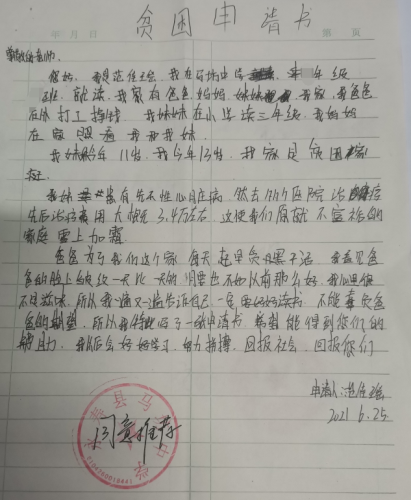 贫困申请书
年 月 日
第 页
尊敬的老师:
您好,我是范佳瑶,我在马 中学 年级
班就读,我家有爸爸妈妈妹妹 我家,我爸爸
在外打工挣钱,我妹妹在小学读三年级,我妈妈
在家照看我和我妹。
我妹今年11岁,我今年13岁,我家是贫困家
庭。
我妹 患有先天性心脏病,然去 医院治
先后治疗费用大概花3.4万左右,这使我们原就不富裕的
家庭雪上加霜。
爸爸为了我们这个家每天起早贪黑干活,看着见爸
爸的脸上皱纹一天比一天的 也不如以前那么好,我心里很
不是滋味,所以我一遍又一遍告诉自己一定要好好读书,不能辜负爸
爸的期望,所以我特地写了一张申请书,希望能得到您们的
帮助,我以后会好好学习,努力拼搏,回报社会,回报你们
申请人:范佳瑶
2021 6.25
县马
同意推荐